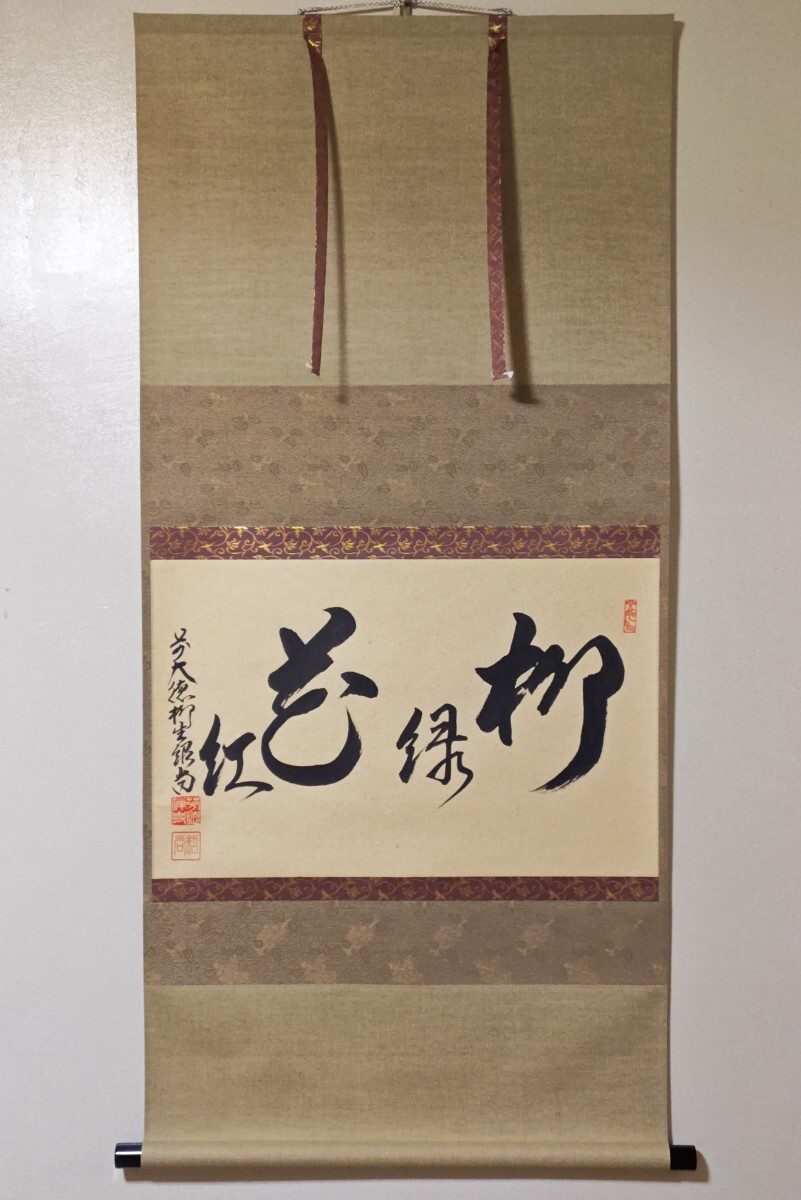 柳緑花紅
前大徳柳生紹尚